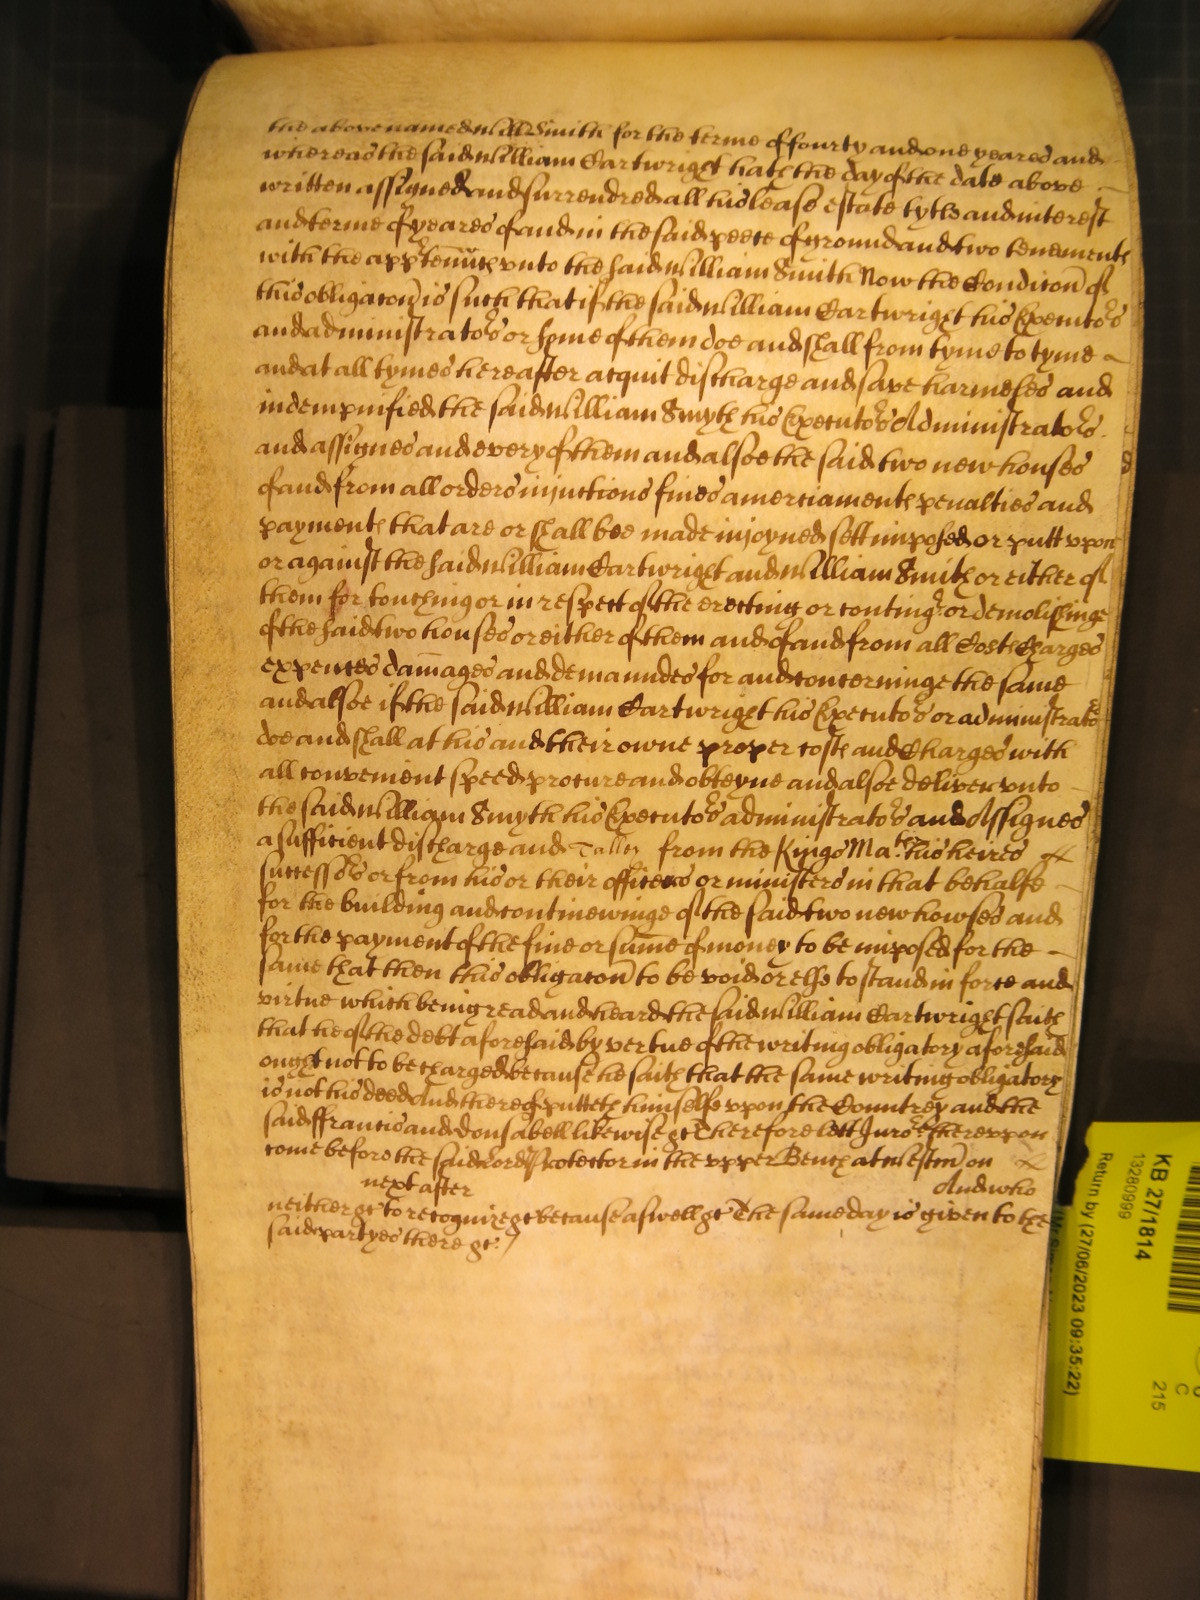 the above named Will Smith for the terme of fourty and one yeares and
whereas the said William Cartwright hath the day of the date above
written assigned and surrendred all his lease estate tytle and interest
and terme of yeares of and in the said peece of ground and two tenements
with the apptennces unto the said William Smith Now the Condicon of
this obligacon is such that if the said William Cartwright his Executors
and administrators or some of them doe and shall from tyme to tyme
and at all tymes hereafter acquit discharge and save harmeles and
indempnified the said William Smyth his Executors Administrators
and assignes and every of them and alsoe the said two new houses
of and from all orders injuctions fines amerciaments penalties and
payments that are or shall bee made injoyned sett imposed or putt vpon
or against the said William Cartwright and William Smith or either of
them for touching or in respect of the erecting or conting or demolishinge
of the said two houses or either of them and of and from all Costs Charges
expences damages and demaundes for and concerninge the same
and alsoe if the said William Cartwright his Executors or administrators
doe and shall at his and their owne proper costs and Charges with
all convenient speed procure and obteyne and alsoe deliver vnto
the said William Smyth his Executors administrators and Assignes
a sufficient discharge and Talley from the Kings Maties his heires
successors or from his or their officers or ministers in that behalfe
for the building and continewinge of the said two new howses and
for the payment of the fine or sume of money to be imposed for the
same that then this obligacon to be void or else to stand in force and
virtue which being read and heard the said William Cartwright saith
that he of the debt aforesaid by vertue of the writing obligatory aforesaid
ought not to be charged because he saith that the same writing obligatory
is not his deed And thereof putteth himselfe vpon the Countrey and the
said ffrancis and Dousabell likewise &c Therefore lett Jurors thereupon
come before the said Lord Protector in the upper Bench at Westm on
next after And who
neither &c to recognize &c because aswell &c The same day is given to the
said partyes there &c
KB 27/1814
13280999
Return by (27/06/2023 09:35:22)
C
215